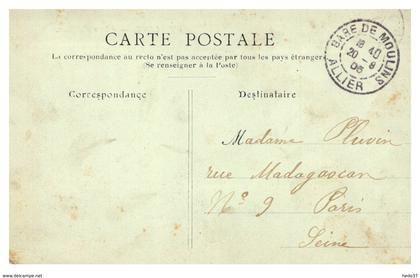 CARTE POSTALE
La correspondance au recto n'est pas acceptée par tous les pays étrangers
(Se renseigner à la Poste)
GARE DE MOULINS
18 40
20 - 8
06
ALLIER
Correspondance
Destinataire
Madame Pluvin
rue Madagascar
N° 9 Paris
Seine